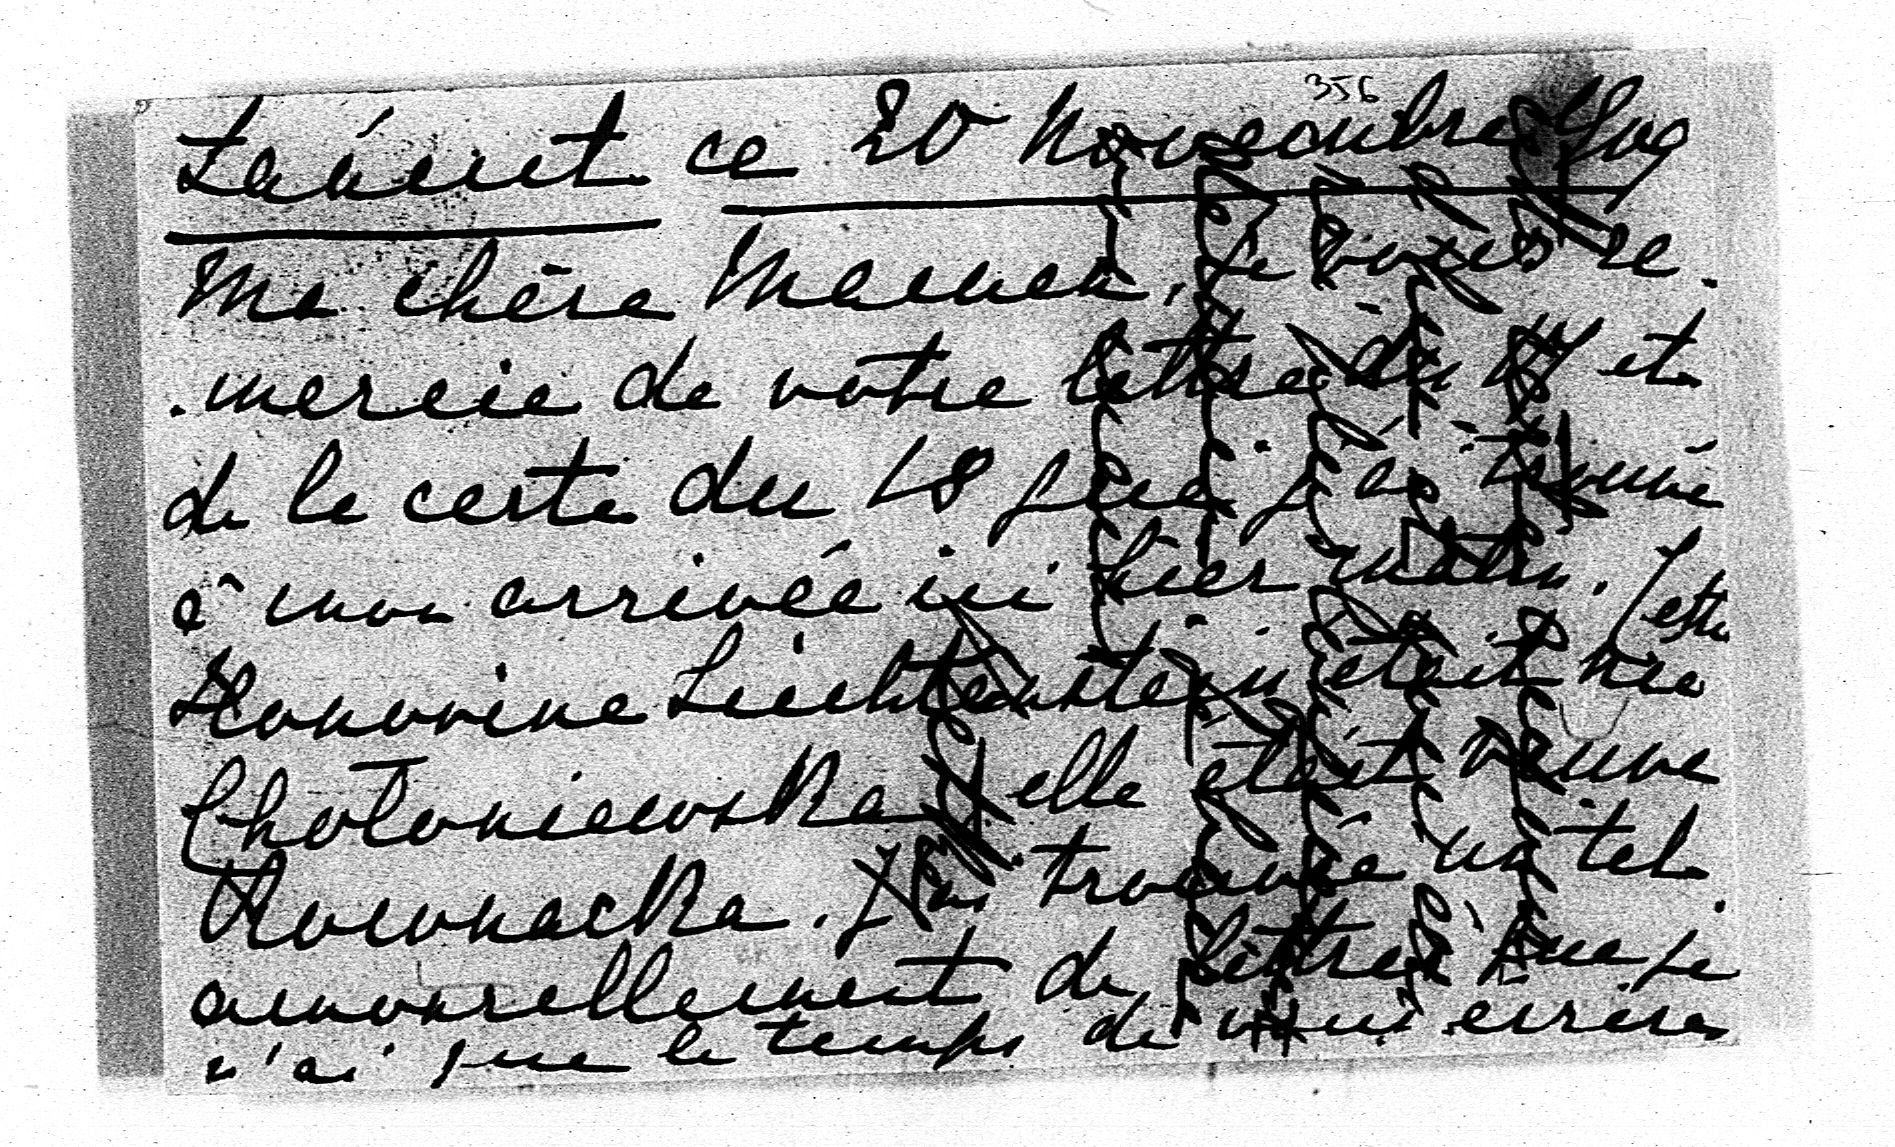 356
Łańcut ce 20 Novembre
Ma chère Maman, je vous re-
mercie de votre lettre du et
de la carte du 18 que j'ai trouvé
à mon arrivée ici hier matin. Cette
Honorine Liechtenstein était née
Chołoniewska elle était veuve
Kownacka. J'ai trouvée un tel
amonsellement de lettres que je
n'ai que le temps de vous écrire